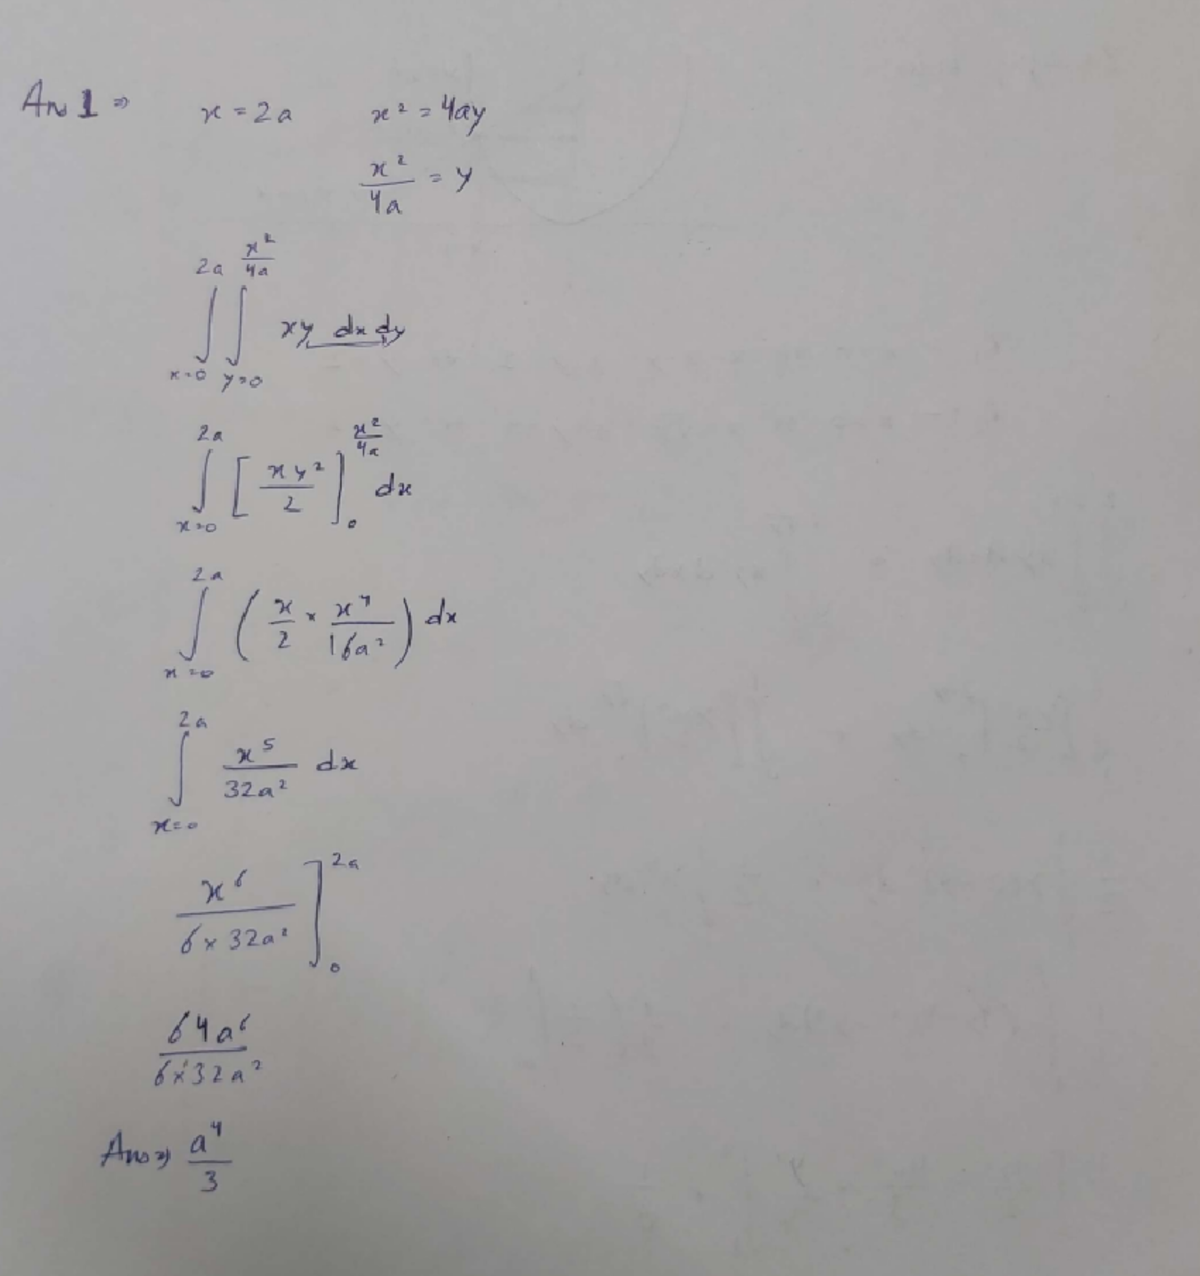 Ans 1 ⇒ x = 2a x² = 4ay
x²/4a = y
∫_{x=0}^{2a} ∫_{y=0}^{x²/4a} xy dx dy
∫_{x=0}^{2a} [xy²/2]_0^{x²/4a} dx
∫_{x=0}^{2a} (x/2 × x⁴/16a²) dx
∫_{x=0}^{2a} x⁵/32a² dx
x⁶/(6×32a²)]_0^{2a}
64a⁶/(6×32a²)
Ans ⇒ a⁴/3